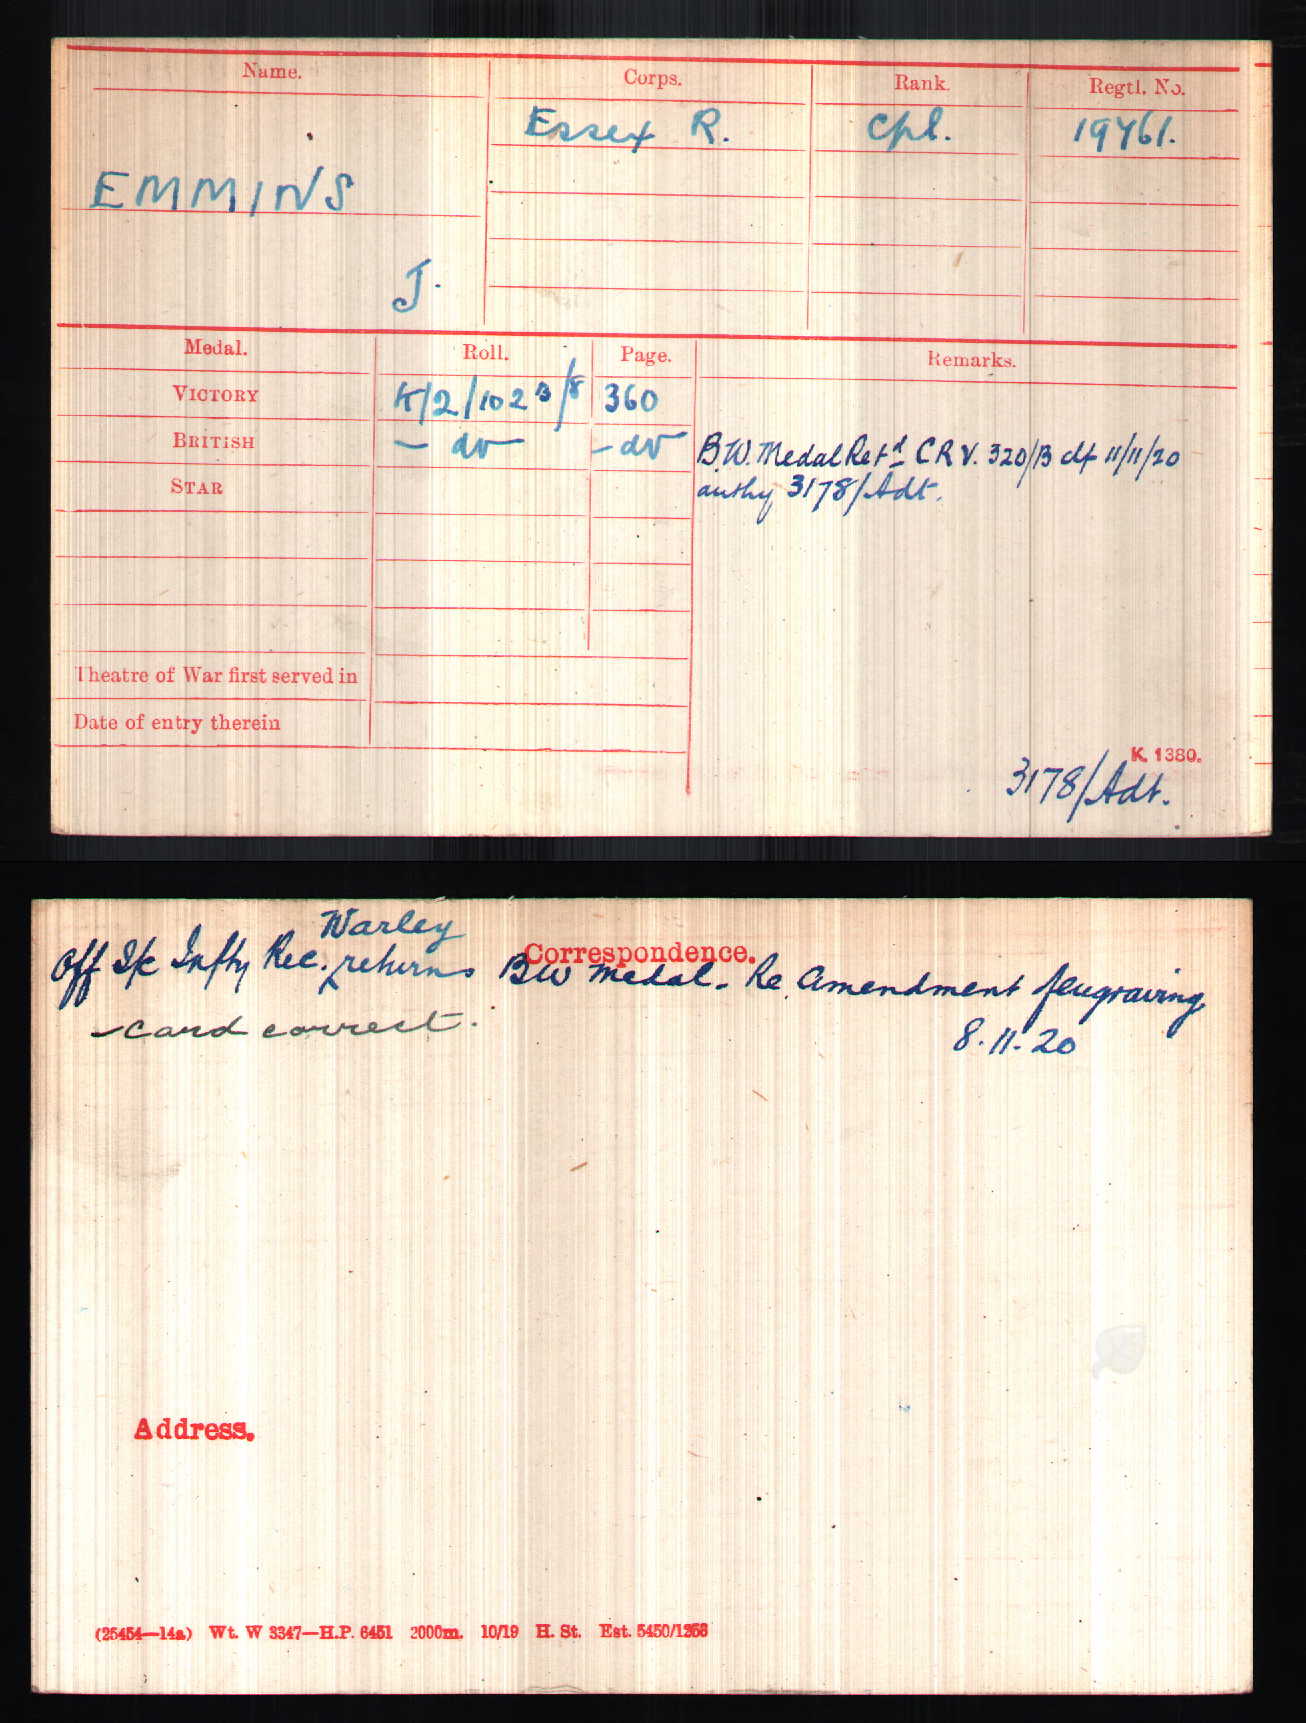 Name. Corps. Rank. Regtl. No.
Essex R. Cpl. 19761.
EMMINS
J.
Medal. Roll. Page. Remarks.
VICTORY K/2/102 B/8 360
BRITISH — do — - do B.W. Medal Retd CRV. 320/B dt 11/11/20
STAR authy 3178/Adt.
Theatre of War first served in
Date of entry therein
K. 1380.
3178/Adt.
Warley
Correspondence.
Off I/c Infty Rec. returns BW Medal. Re Amendment of engraving
- card correct.
8.11.20
Address.
(25454—14a) Wt. W 3347—H.P. 6451 2000m. 10/19 H. St. Est. 5450/1256